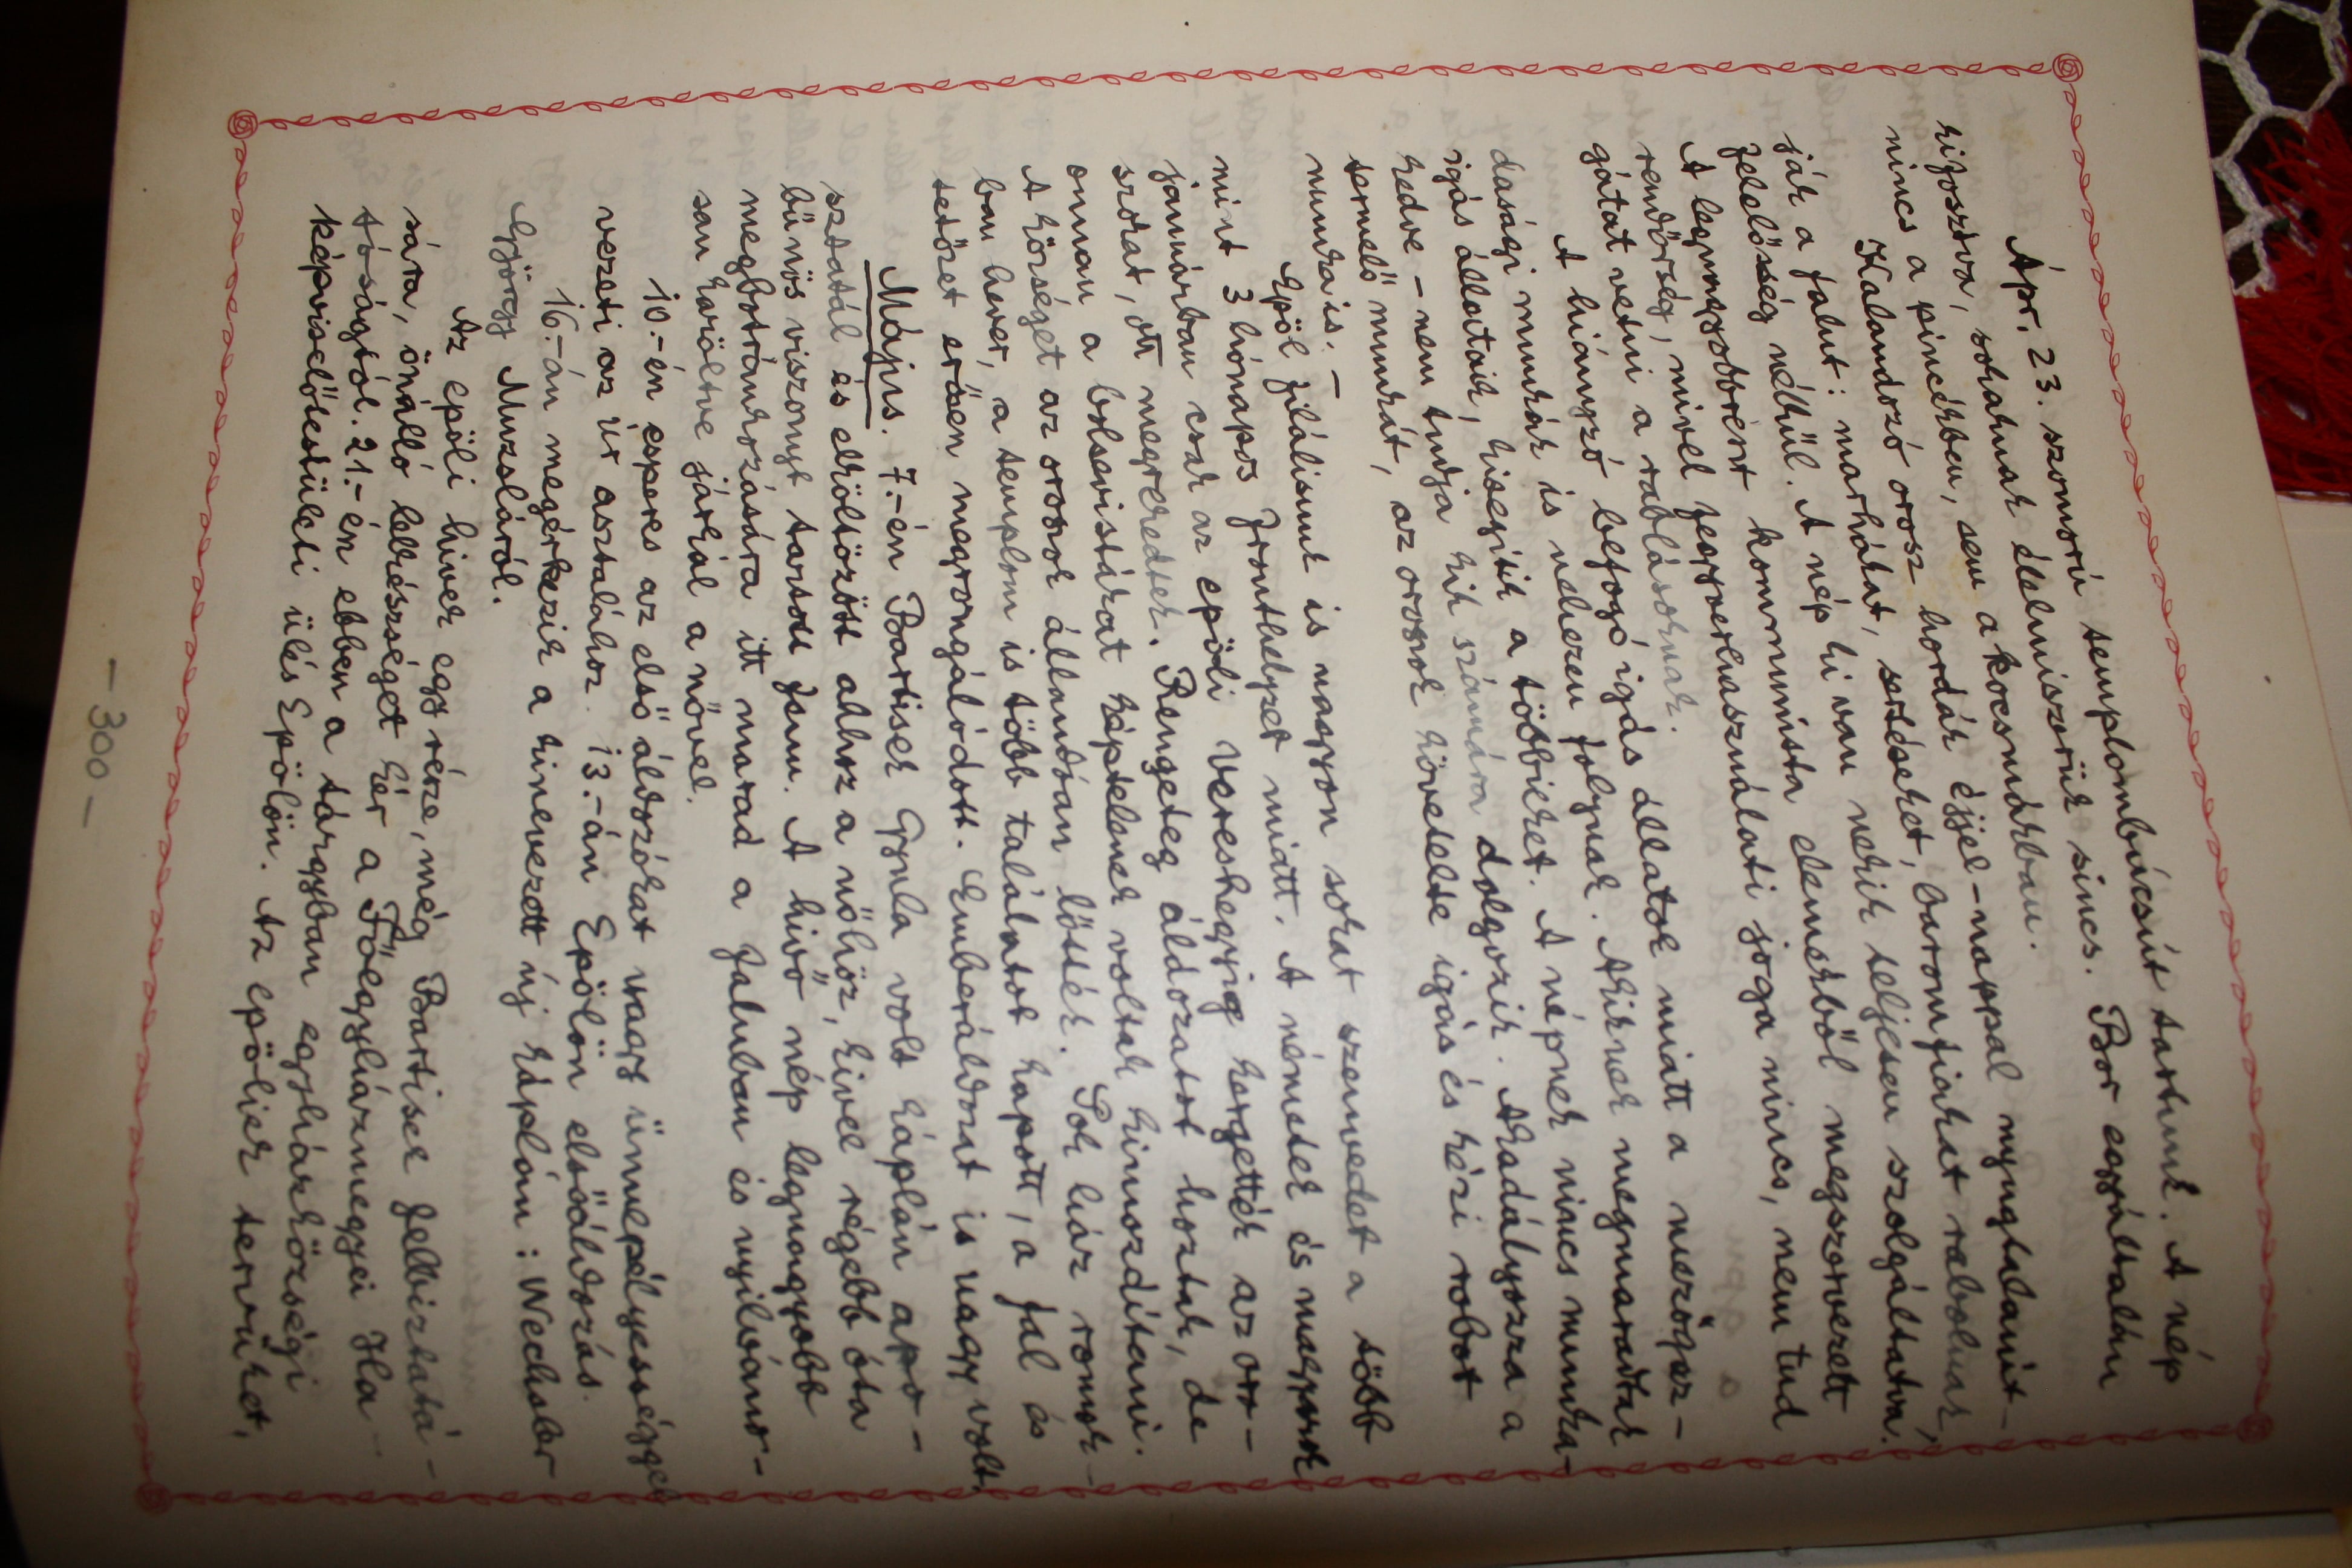 Ápr. 23. szomorú templombúcsút tartunk. A nép
kifosztva, sokaknak élelmiszerük sincs. Bor egyáltalán
nincs a pincékben, sem a kocsmákban.
Kalandozó orosz hordák éjjel-nappal nyugtalanít-
ják a falut: marhákat, sertéseket, baromfiakat rabolnak,
felelősség nélkül. A nép ki van nekik teljesen szolgáltatva.
A legnagyobbrészt kommunista elemekből megszervezett
rendőrség, mivel fegyverhasználati joga nincs, nem tud
gátat vetni a rablásoknak.
A hiányzó befogó igás állatok miatt a mezőgaz-
dasági munkák is nehezen folynak. Akiknek megmaradtak
igás állataik, kisegítik a többieket. A népnek nincs munka-
kedve - nem tudja kik számára dolgozik. Akadályozza a
termelő munkát, az oroszok követelte igás és kézi robot
munka is. -
Epöl filálisunk is nagyon sokat szenvedett a több
mint 3 hónapos fronthelyzet miatt. A németek és magyarok
januárban csak az epöli Vereshegyig kergették az oro-
szokat, ott megrekedtek. Rengeteg áldozatot hoztak, de
onnan a bolsevistákat képtelenek voltak kimozdítani.
A községet az oroszok állandóan lőtték. Sok ház romok-
ban hever, a templom is több találatot kapott, a fal és
tetőzet erősen megrongálódott. Emberáldozat is nagy volt.
Május. 7.-én Bartisek Gyula volt káplán apo-
sztatál és elköltözött ahhoz a nőhöz, kivel régebb óta
bűnös viszonyt tartott fenn. A hivő nép legnagyobb
megbotránkozására itt marad a faluban és nyilváno-
san karöltve járkál a nővel.
10.-én esperes az első áldozókat nagy ünnepélyességgel
vezeti az Úr asztalához. 13.-án Epölön elsőáldozás.
16.-án megérkezik a kinevezett új káplán: Wechsler
György Muzsláról.
Az epöli hivek egy része, még Bartisek felbiztatá-
sára, önálló lelkészséget kér a Főegyházmegyei Ha-
tóságtól. 21.-én ebben a tárgyban egyházközségi
képviselőtestületi ülés Epölön. Az epöliek tervüket,
- 300 -